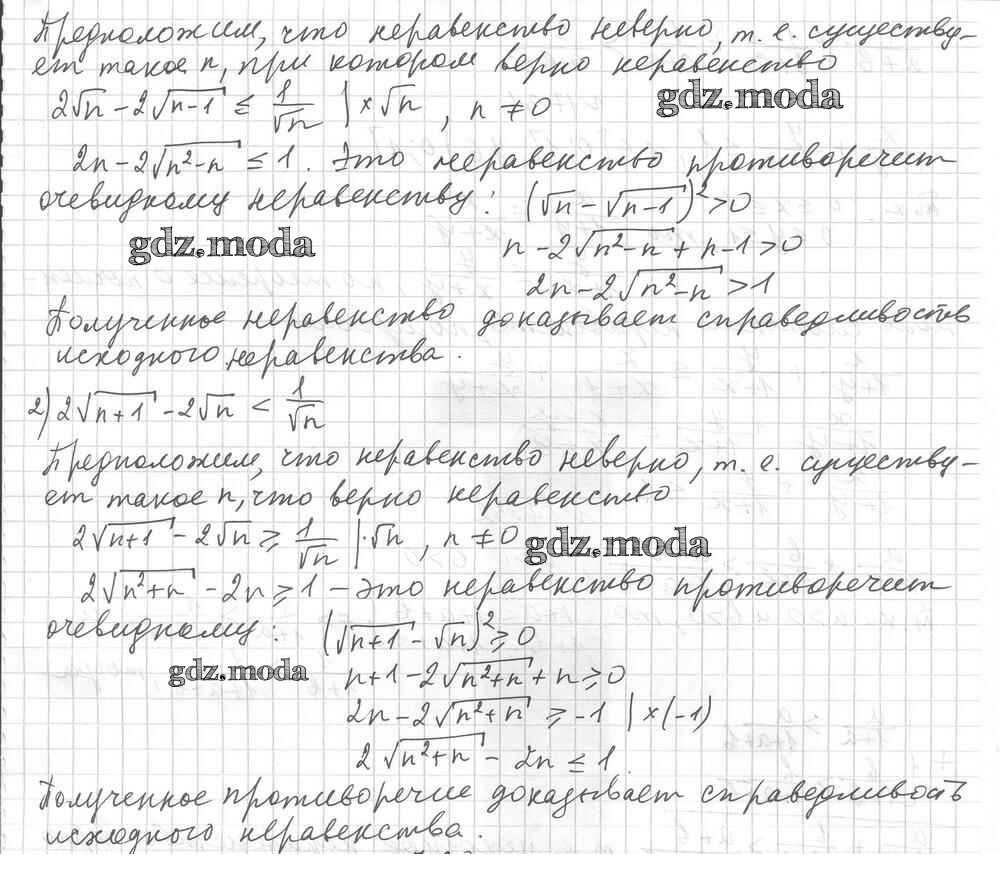 Предположим, что неравенство неверно, т. е. существу-
ет такое n, при котором верно неравенство
2√n - 2√(n-1) ≤ 1/√n | × √n , n ≠ 0
gdz.moda
2n - 2√(n²-n) ≤ 1. Это неравенство противоречит
очевидному неравенству: (√n - √(n-1))² > 0
gdz.moda
n - 2√(n²-n) + n - 1 > 0
2n - 2√(n²-n) > 1
Полученное неравенство доказывает справедливость
исходного неравенства.
2) 2√(n+1) - 2√n < 1/√n
Предположим, что неравенство неверно, т. е. существу-
ет такое n, что верно неравенство
2√(n+1) - 2√n ≥ 1/√n | · √n , n ≠ 0
gdz.moda
2√(n²+n) - 2n ≥ 1 - это неравенство противоречит
очевидному: (√(n+1) - √n)² ≥ 0
gdz.moda
n + 1 - 2√(n²+n) + n ≥ 0
2n - 2√(n²+n) ≥ -1 | × (-1)
2√(n²+n) - 2n ≤ 1.
Полученное противоречие доказывает справедливость
исходного неравенства.